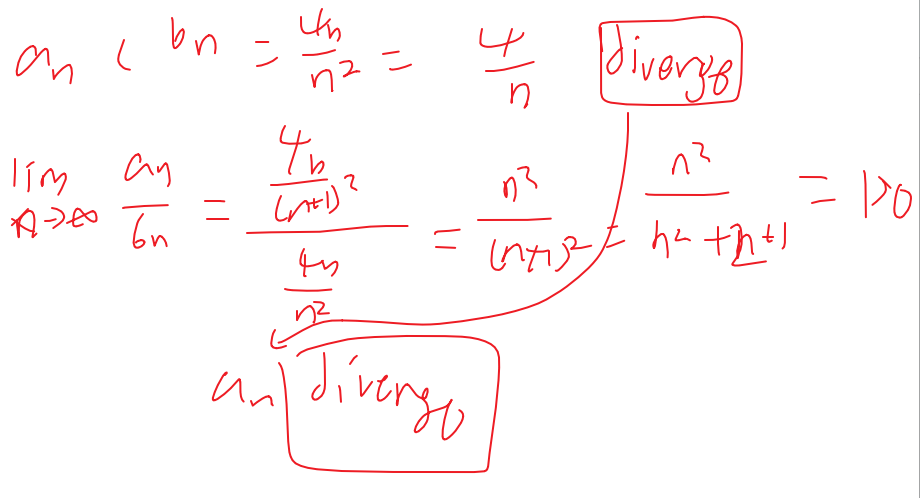 a_n < b_n = 4n/n² = 4/n diverge
lim n→∞ a_n/b_n = (4n/(n+1)²)/(4n/n²) = n²/(n+1)² = n²/(n²+2n+1) = 1>0
a_n diverge